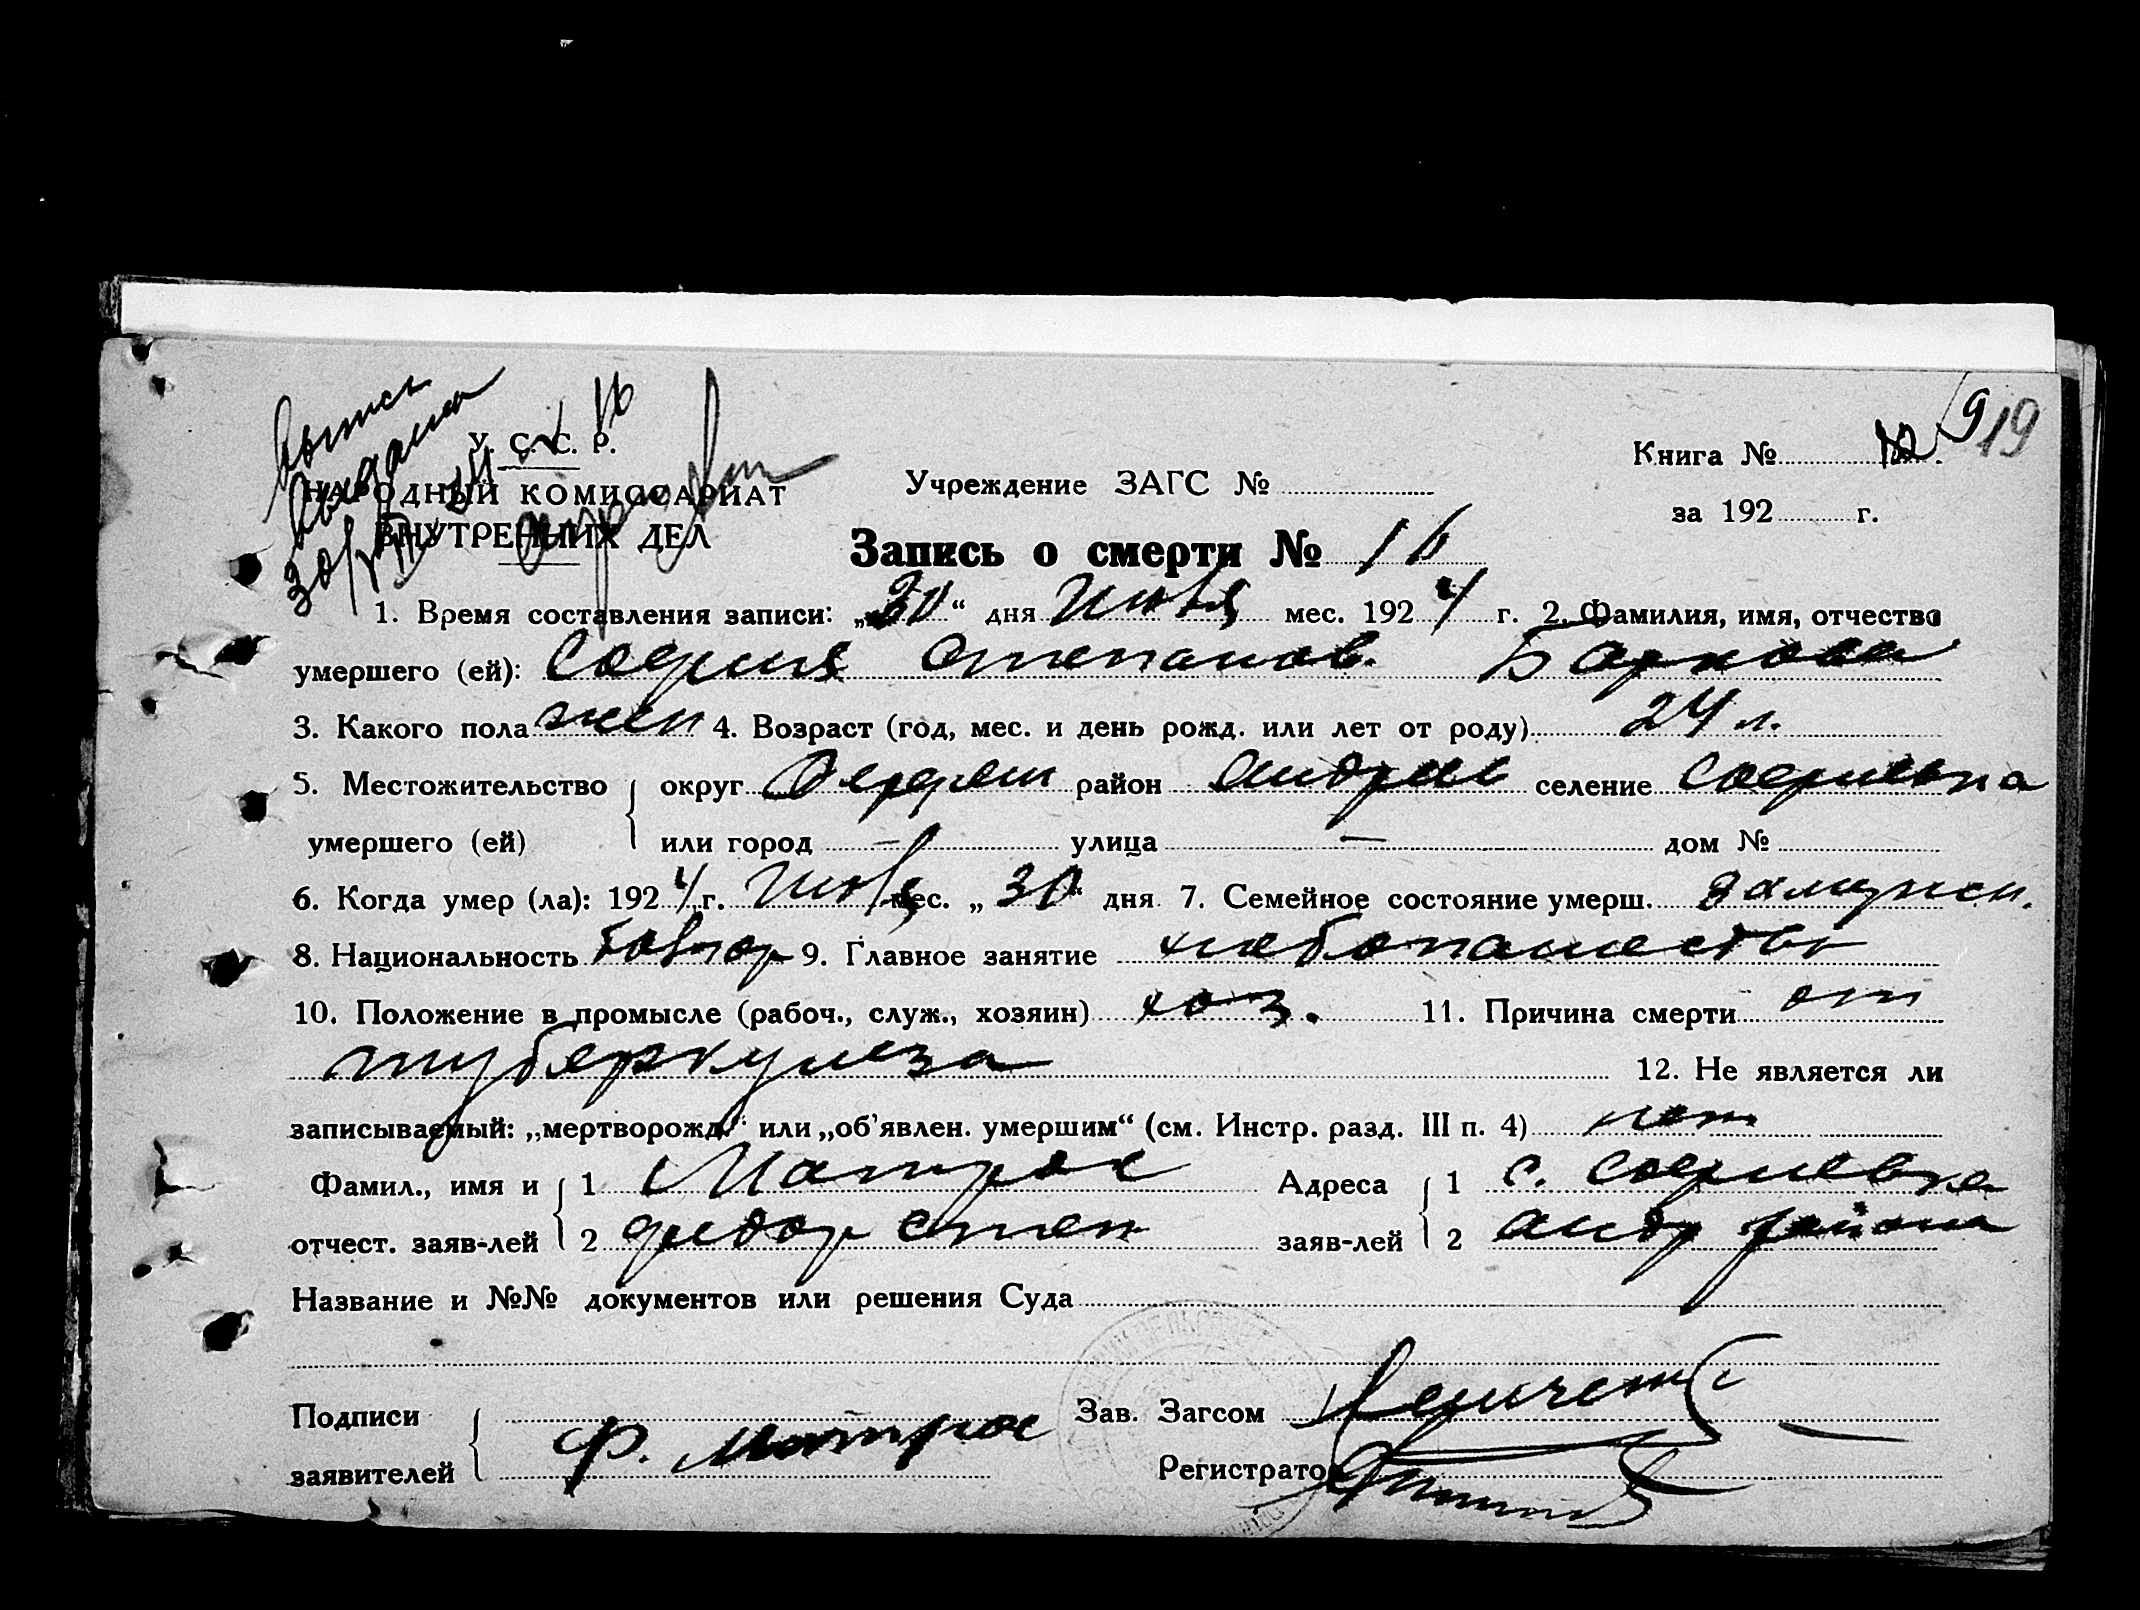 Выпись
выдана
У. С. С. Р.
НАРОДНЫЙ КОМИССАРИАТ
ВНУТРЕННИХ ДЕЛ
Учреждение ЗАГС №
Книга № 12. 19
за 192 г.
Запись о смерти № 16
1. Время составления записи: „30“ дня июля мес. 1924 г. 2. Фамилия, имя, отчество
умершего (ей): София Степанов. Баркова
3. Какого пола жен 4. Возраст (год, мес. и день рожд. или лет от роду) 24 л.
5. Местожительство округ район Андрев селение Софиевка
умершего (ей) или город — улица — дом №
6. Когда умер (ла): 1924 г. июля мес. „30“ дня 7. Семейное состояние умерш. замужн.
8. Национальность 9. Главное занятие хлебопашество
10. Положение в промысле (рабоч., служ., хозяин) хоз. 11. Причина смерти от
туберкулеза 12. Не является ли
записываемый: „мертворожд.“ или „об'явлен. умершим“ (см. Инстр. разд. III п. 4) нет
Фамил., имя и 1 Матрос Адреса 1 с. Софиевка
отчест. заяв-лей 2 Федор Степ заяв-лей 2 Андр района
Название и №№ документов или решения Суда
Подписи Зав. Загсом
заявителей Ф. Матрос Регистратор